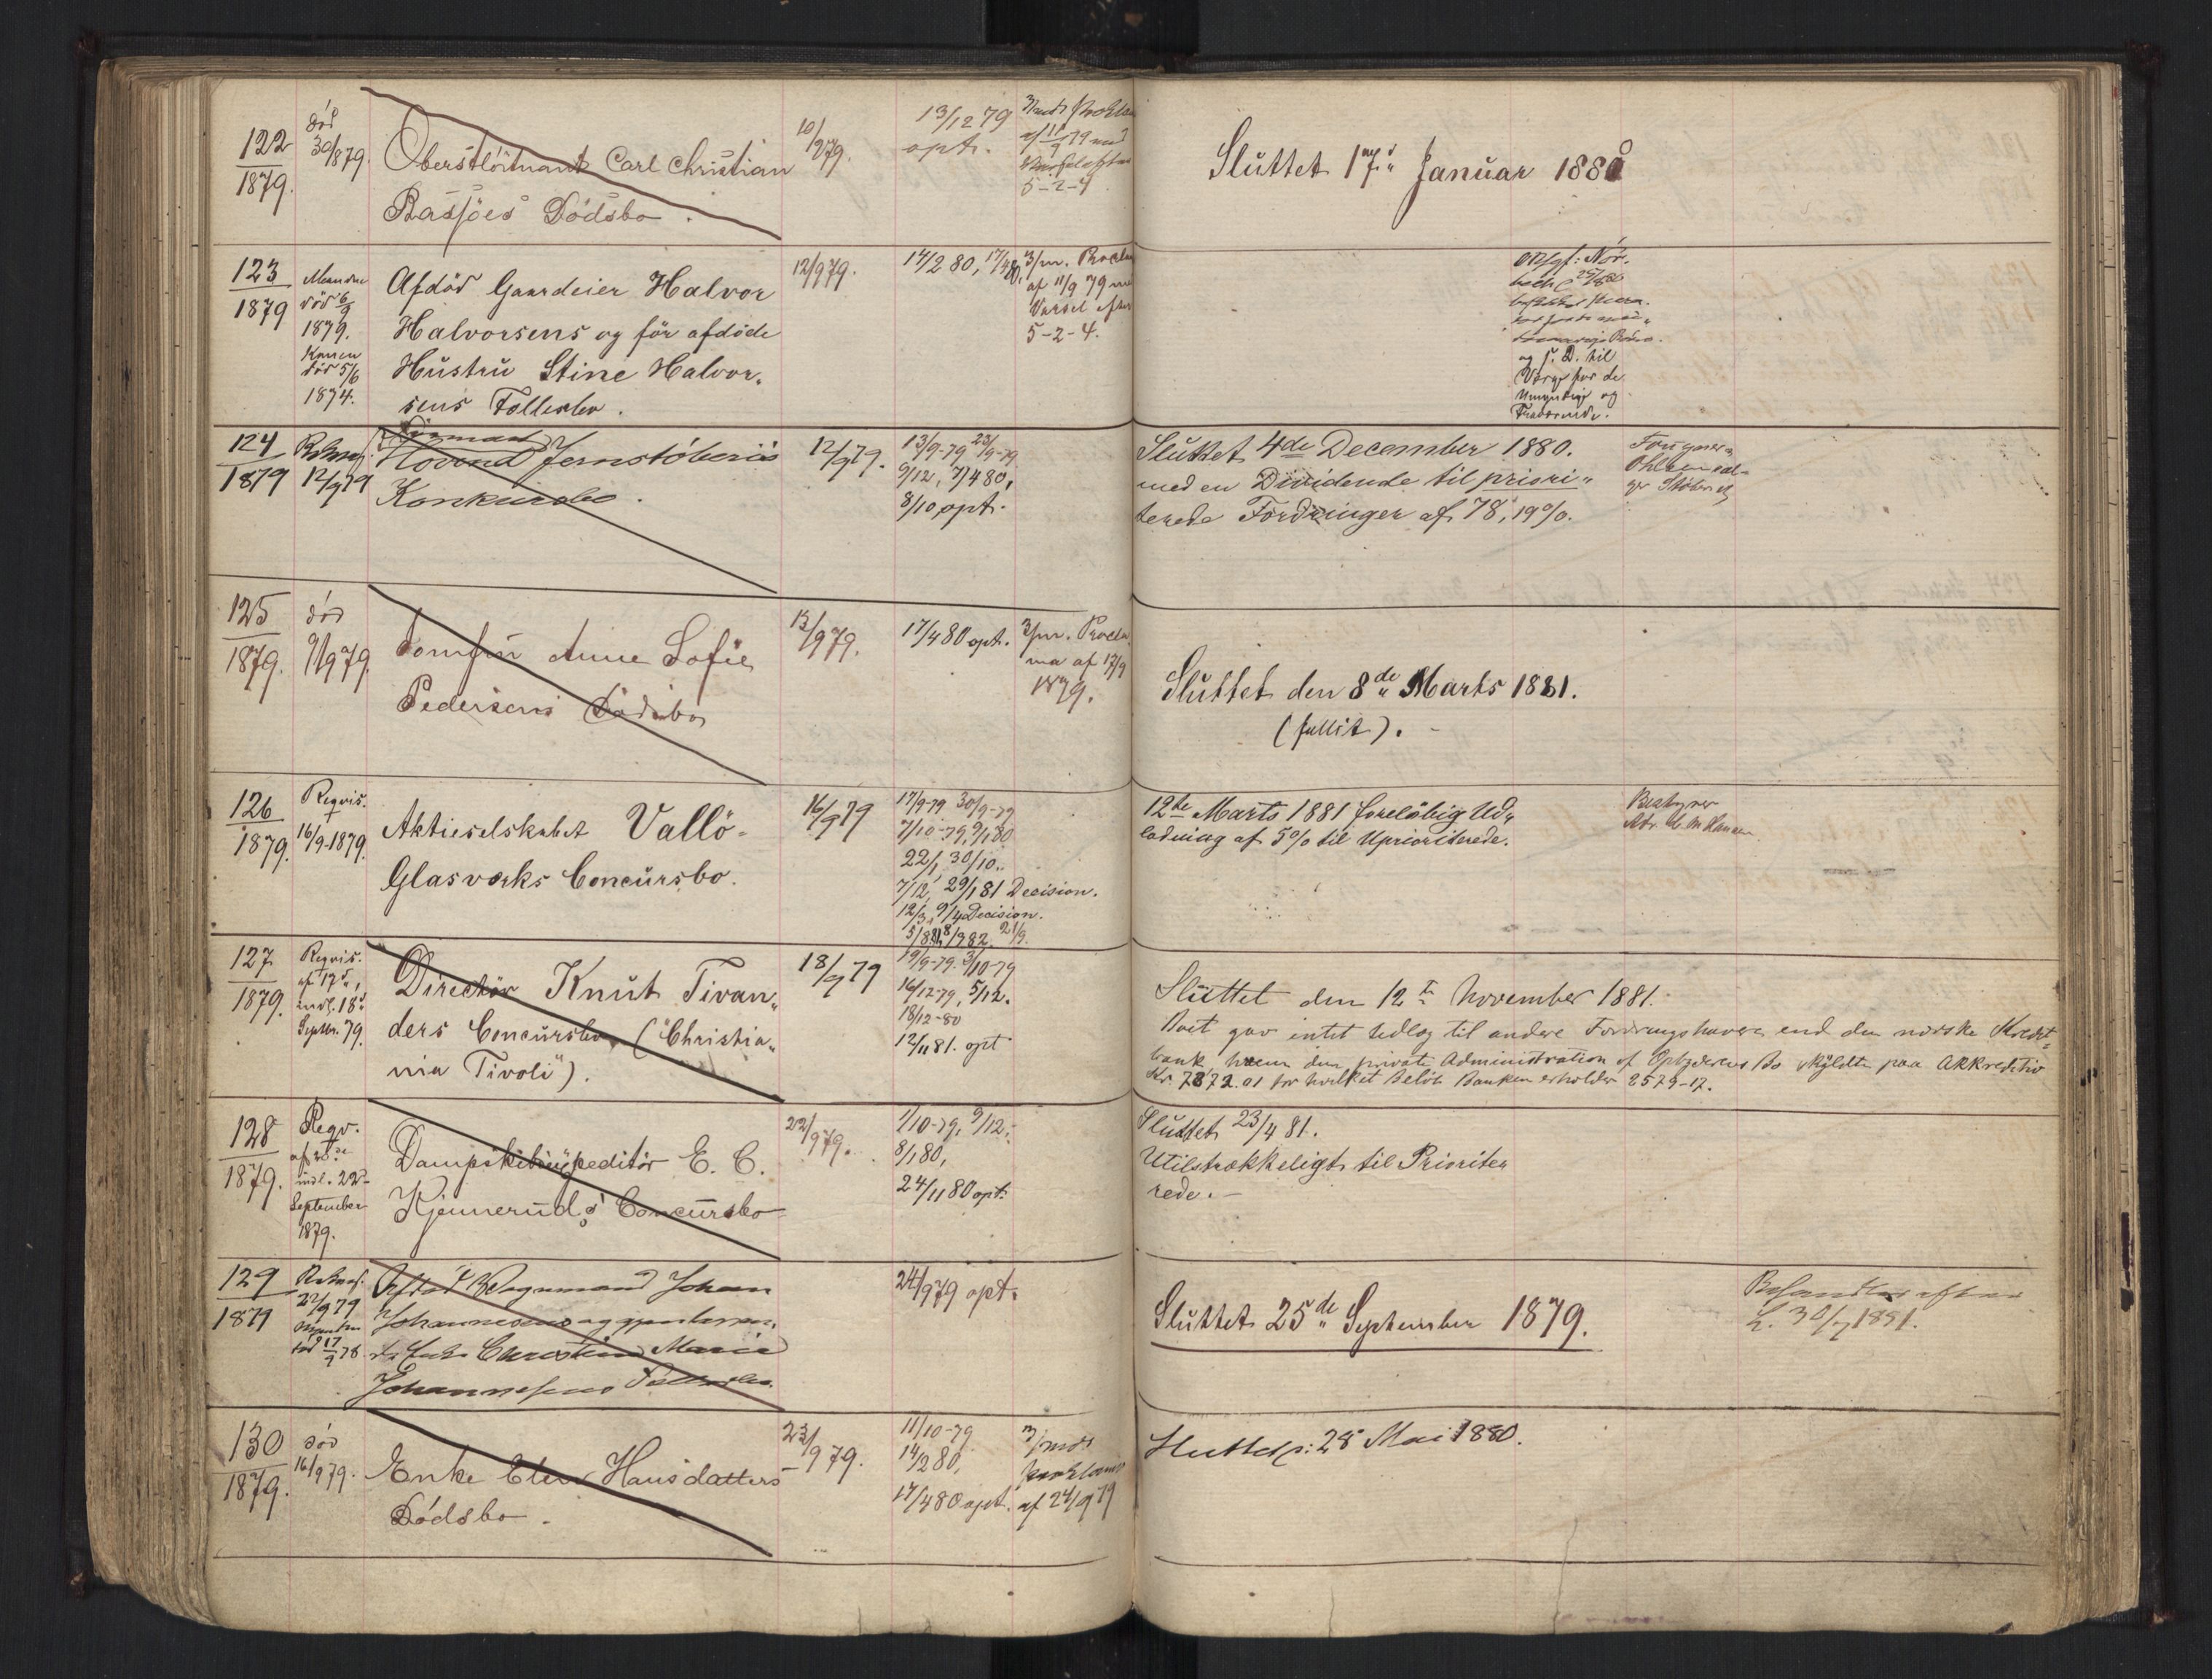 122
1879.
död
30/8 79.
Oberstlöitnant Carl Christian
Bassöes Dödsbo.
10/9 79.
13/12 79
opt.
af 11/9 79 med
5-2-4
Sluttet 17de Januar 1880
123
1879
Manden
död 6/9
1879.
Konen
död 5/6
1874.
Afdöd Gaardeier Halvor
Halvorsens og för afdöde
Hustru Stine Halvor-
sens Fællesbo.
12/9 79.
14/2 80, 17/4 80.
3/m. Procla
af 11/9 79 med
Varsel efter
5-2-4.
og s. D. til
Værge for de
Umyndige og
Fraværende.
124
1879
12/9 79
Firmaet
Hovend Jernstöberis
Konkursbo.
12/9 79.
13/9-79 23/9-79
9/12, 7/4 80,
8/10 opt.
Sluttet 4de December 1880.
med en Dividende til priori-
terede Fordringer af 78,19%.
125
1879.
död
9/9 79
Jomfru Anne Sofie
Pedersens Dödsbo
13/9 79.
17/4 80 opt.
3/m. Procla
ma af 17/9
1879.
Sluttet den 8de Marts 1881.
(fallit).
126
1879.
Reqvis.
16/9-1879.
Aktieselskabet Vallö-
Glasværks Concursbo.
16/9 79
17/9-79 30/9-79
7/10-79, 9/1 80
22/1, 30/10,
7/12, 29/1 81 Decision.
12/3, 9/4 Decision.
5/8 81, 8/3 82. 21/9.
12te Marts 1881 forelöbig Ud-
lodning af 5% til Uprioriterede.
Bestyrer
127
1879.
Reqvis.
af 17de,
indl. 18de
Septbr. 79.
Directör Knut Tivan-
ders Concursbo ("Christia-
nia Tivoli").
18/9 79
19/9-79. 3/10-79
16/12-79, 5/12.
18/12-80
12/11 81. opt
Sluttet den 12te November 1881.
Boet gav intet Udlæg til andere Fordringshavere end den norske Kredit-
bank hvem den private Administration af Opbyderens Bo skyldte paa Akkreditiv
Kr 7872.01 for hvilket Belöb Banken erholder 2579-17.
128
1879.
Reqv.
af 20de
indl. 22de
September
1879.
Dampskibsexpeditör E. C.
Kjennerud's Concursbo
22/9 79.
1/10-79, 9/12,
8/1 80,
24/11 80 opt.
Sluttet 23/4 81.
Utilstrækkeligt til Priorite-
rede.
129
1879
22/9 79
Manden
död 17/9 78
Afdöd Johan
Johannesens og
Christine Marie
Johannesens Fællesbo.
24/9 79 opt.
Sluttet 25de September 1879.
Behandles efter
L. 30/7 1851.
130
1879.
död
16/9 79.
Enke Elen Hansdatters
Dödsbo.
23/9 79.
11/10-79
14/2 80,
17/4 80 opt.
3/mds
proklama
af 24/9 79
Sluttet: 28 Mai 1880.